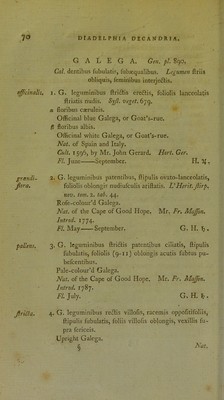 70 DIADELPHIA DECANDRIA.
GALEGA. Gen. pl. 890.
Cal. dentibus subulatis, subæqualibus. Legumen striis
obliquis, seminibus interjectis.
officinalis. 1. G. leguminibus strictis erectis, foliolis lanceolatis
striatis nudis. Syst. veget. 673.
α floribus cæruleis.
Officinal blue Galega, or Goat's-rue.
β floribus albis.
Officinal white Galega, or Goat's-rue.
Nat. of Spain and Italy.
Cult. 1596, by Mr. John Gerard. Hort. Ger.
Fl. June——September. H. ♃.
grandi-
flora. 2. G. leguminibus patentibus, stipulis ovato-lanceolatis,
foliolis oblongis mediusculis aristatis. L'Herit. stirp.
nov. tom. 2. tab. 44.
Rose-colour'd Galega.
Nat. of the Cape of Good Hope. Mr. Fr. Masson.
Introd. 1774.
Fl. May——September. G. H. ♄.
patens. 3. G. leguminibus strictis patentibus ciliatis, stipulis
subulatis, foliolis (9-11) oblongis acutis subtus pu-
bescentibus.
Pale-colour'd Galega.
Nat. of the Cape of Good Hope. Mr. Fr. Masson.
Introd. 1787.
Fl. July. G. H. ♄.
stricta. 4. G. leguminibus rectis villosis, racemis oppositifoliis,
stipulis subulatis, foliis villosis oblongis, vexillis su-
pra sericeis.
Upright Galega.
§ Nat.